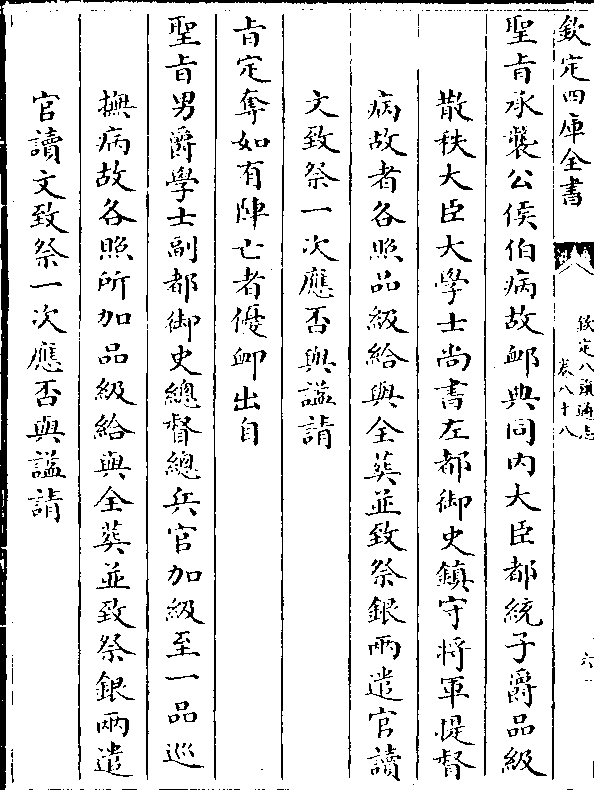 欽定四庫全書
欽定八旗通志
卷八十八
六
聖旨承襲公侯伯病故卹典同内大臣都統子爵品級
散秩大臣大學士尚書左都御史鎮守将軍提督
病故者各照品級給與全葬並致祭銀兩遣官讀
文致祭一次應否與諡請
旨定奪如有陣亡者優卹出自
聖旨男爵學士副都御史總督總兵官加級至一品巡
撫病故各照所加品級給與全葬並致祭銀兩遣
官讀文致祭一次應否與諡請